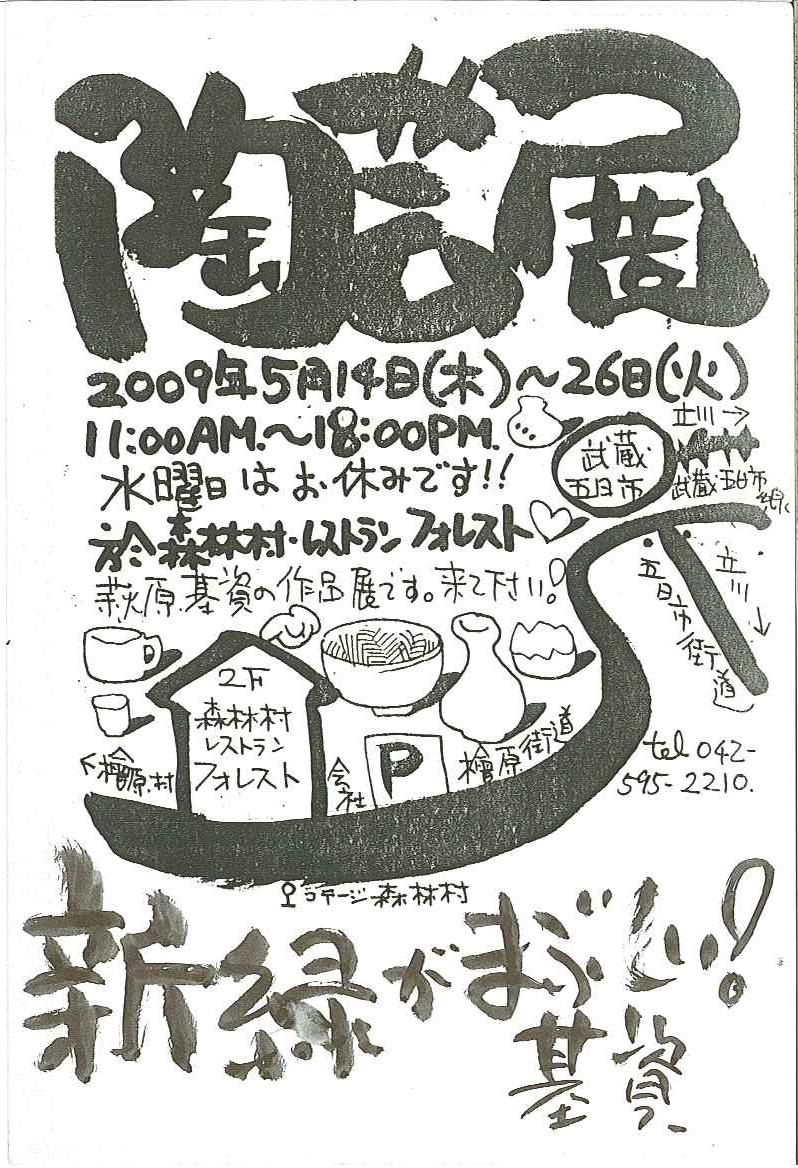 陶芸展
2009年5月14日(木)～26日(火)
11:00AM.～18:00PM.
水曜日はお休みです!!
於 森林村・レストランフォレスト♡
萩原基資の作品展です。来て下さい!
立川→
武蔵
五日市
武蔵五日市線
立川→
五日市街道
2F
森林村
レストラン
フォレスト
会社
P
檜原街道
檜原村
tel 042-
595-2210.
コテージ森林村
新緑がまぶしい!
基資